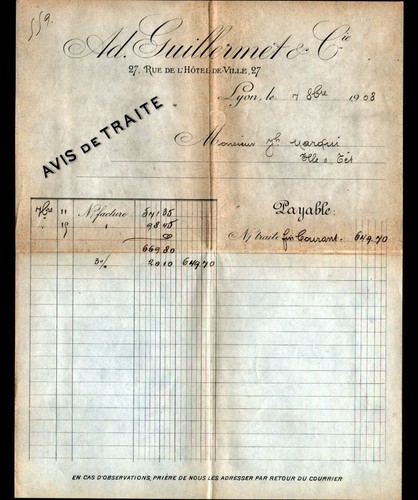 559.
Ad. Guillermet & Cie
27, RUE DE L'HÔTEL-DE-VILLE, 27
Lyon, le 7 8bre 1908
AVIS DE TRAITE
Monsieur Jh Marqui
Ille s Tet
Payable:
7bre 11 N/facture 541 35
98 45
669.80
N/ traite fin Courant. 649.70
3% 20 10 649.70
EN CAS D'OBSERVATIONS, PRIÈRE DE NOUS LES ADRESSER PAR RETOUR DU COURRIER